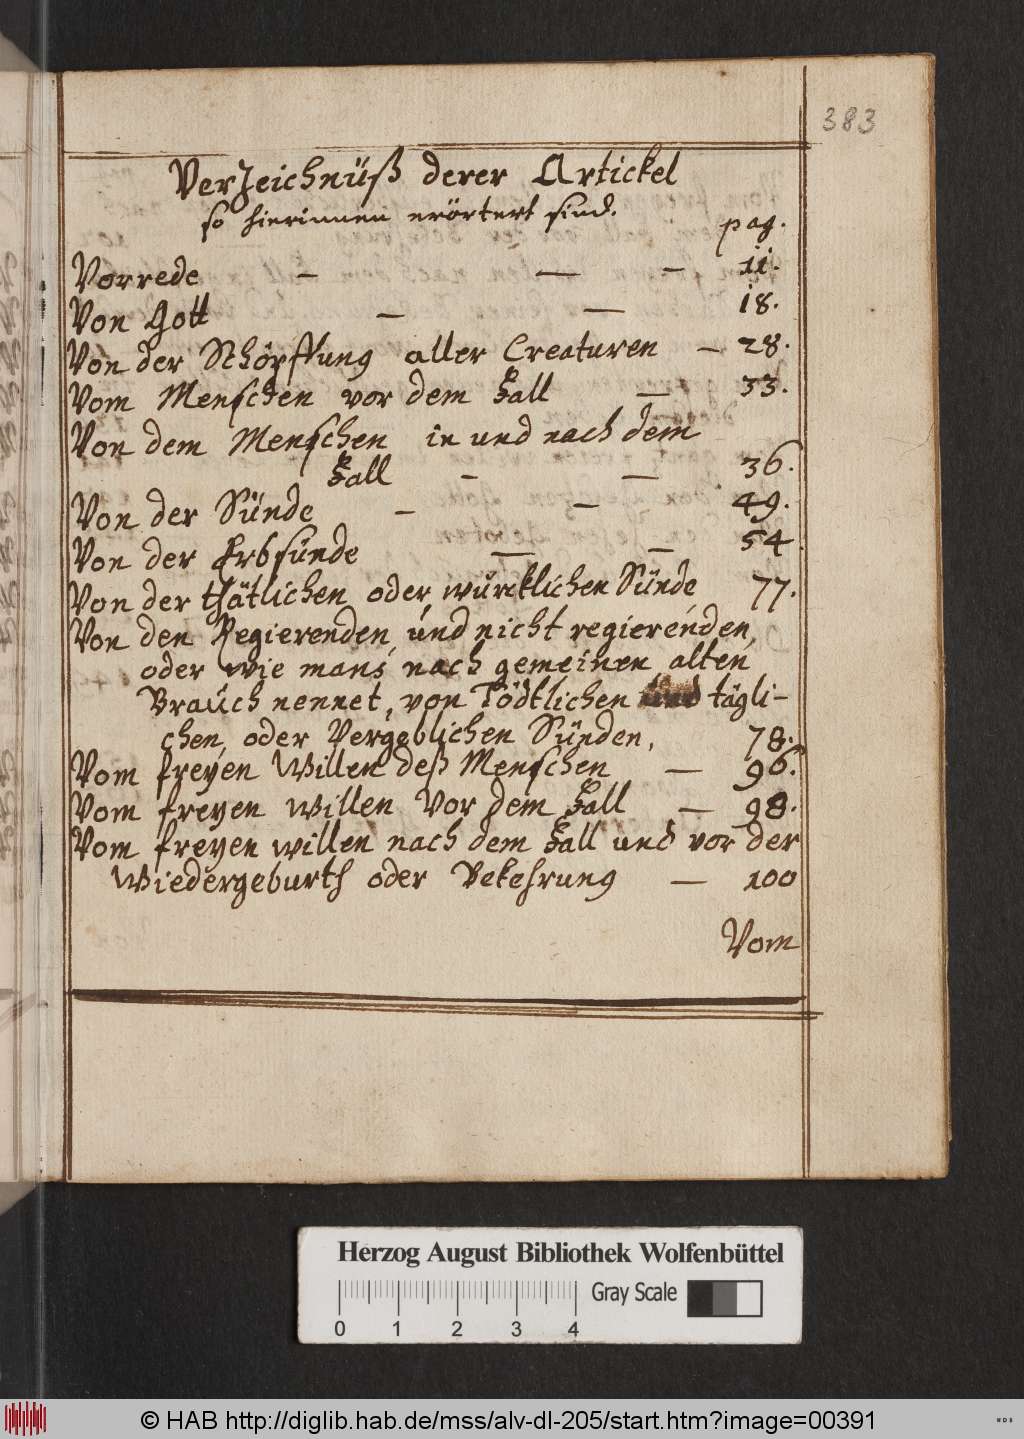 383
Verzeichnüß derer Artickel
so hierinnen erörtert sind.
pag.
Vorrede — — — 11.
Von Gott — — 18.
Von der Schöpffung aller Creaturen — 28.
Vom Menschen vor dem Fall — 33.
Von dem Menschen in und nach dem
Fall — — 36.
Von der Sünde — — 49.
Von der Erbsünde — — 54
Von der thätlichen oder würcklichen Sünde 77.
Von den Regierenden und nicht regierenden,
oder wie mans nach gemeinen alten
Brauch nennet, von Tödtlichen und tägli-
chen, oder Vergeblichen Sünden, 78.
Vom freyen Willen deß Menschen — 96.
Vom freyen willen vor dem Fall — 98.
Vom freyen willen nach dem Fall und vor der
Wiedergeburth oder Bekehrung — 100
Vom
Herzog August Bibliothek Wolfenbüttel
Gray Scale
0 1 2 3 4
© HAB http://diglib.hab.de/mss/alv-dl-205/start.htm?image=00391
WDB